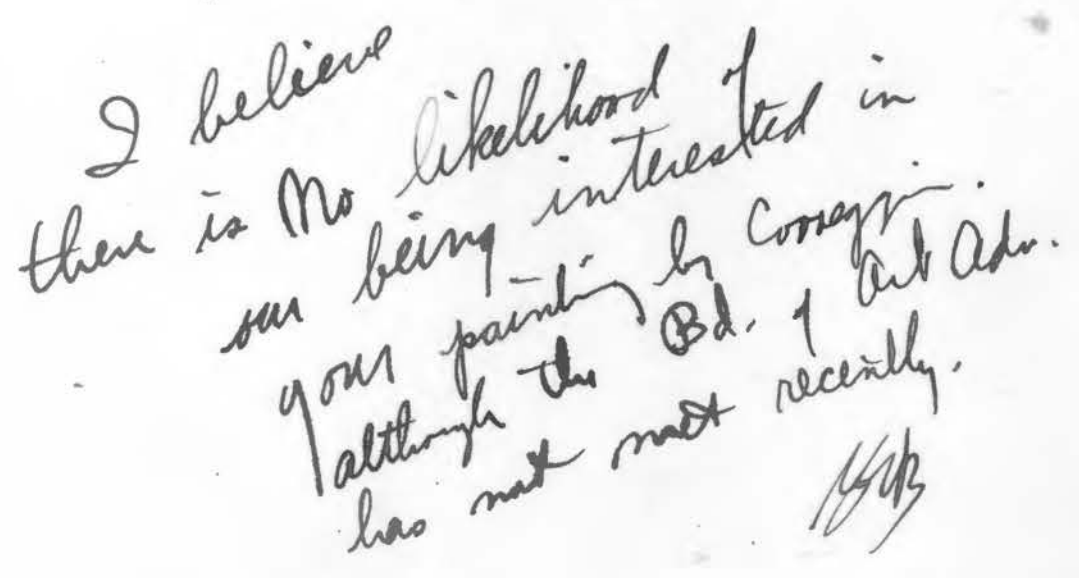 I believe
there is No likelihood of
our being interested in
your painting by Correggio.
although the Bd. of Art Adv.
has not met recently.